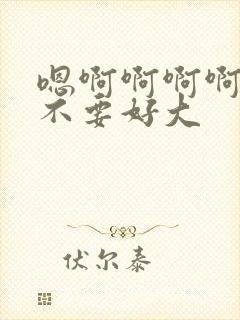 嗯啊啊啊啊
不要好大
伏尔泰